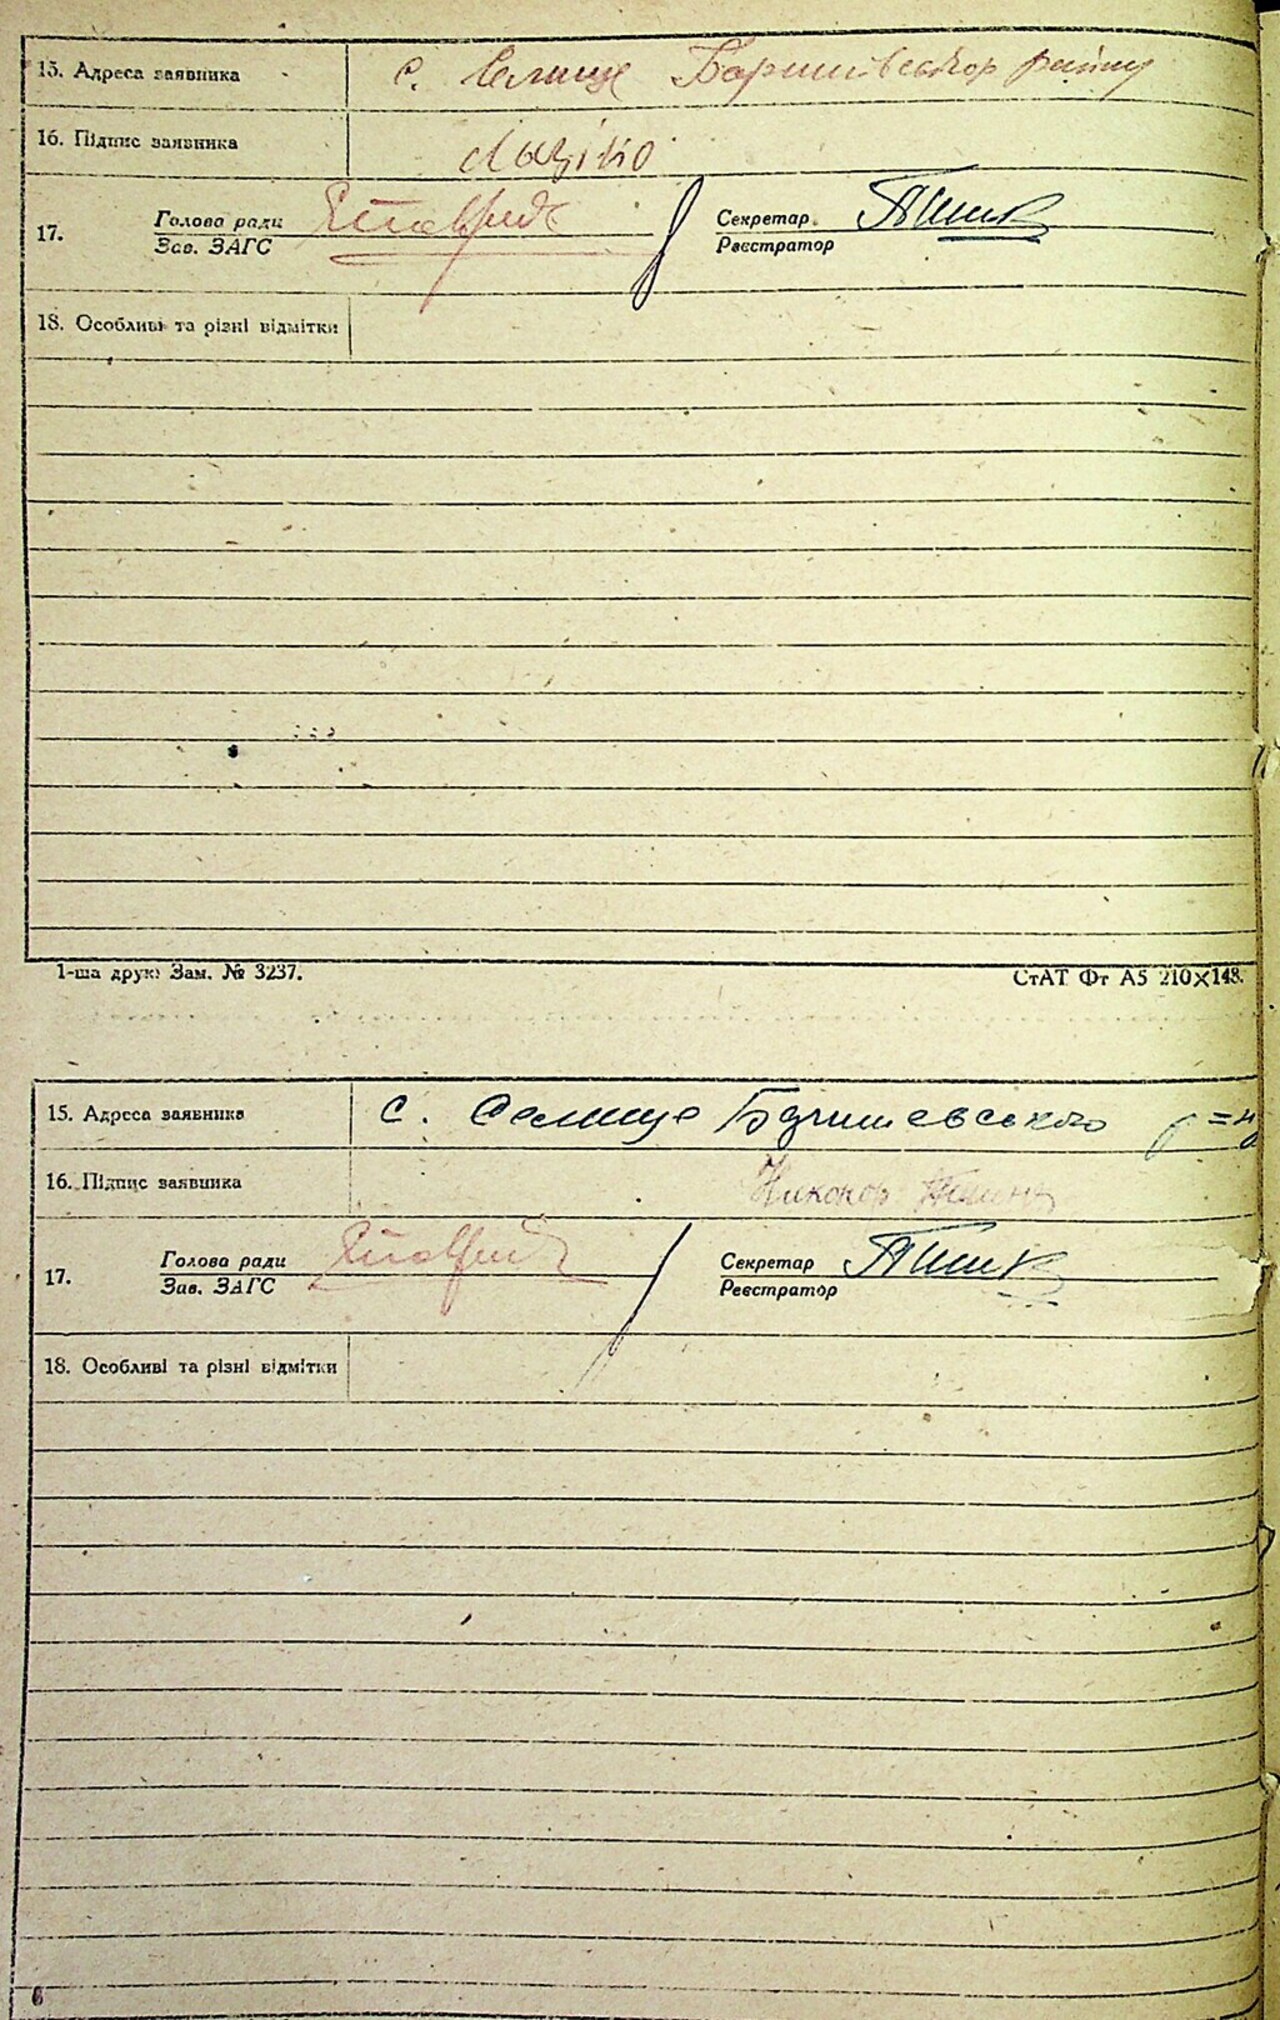 15. Адреса заявника с. Селище Баришівського району
16. Підпис заявника
17. Голова ради Секретар
Зав. ЗАГС Реєстратор
18. Особливі та різні відмітки
1-ша друк. Зам. № 3237. СтАТ Фт А5 210×148.
15. Адреса заявника с. Селище Баришевського р=ну
16. Підпис заявника Никонор
17. Голова ради Секретар
Зав. ЗАГС Реєстратор
18. Особливі та різні відмітки
6